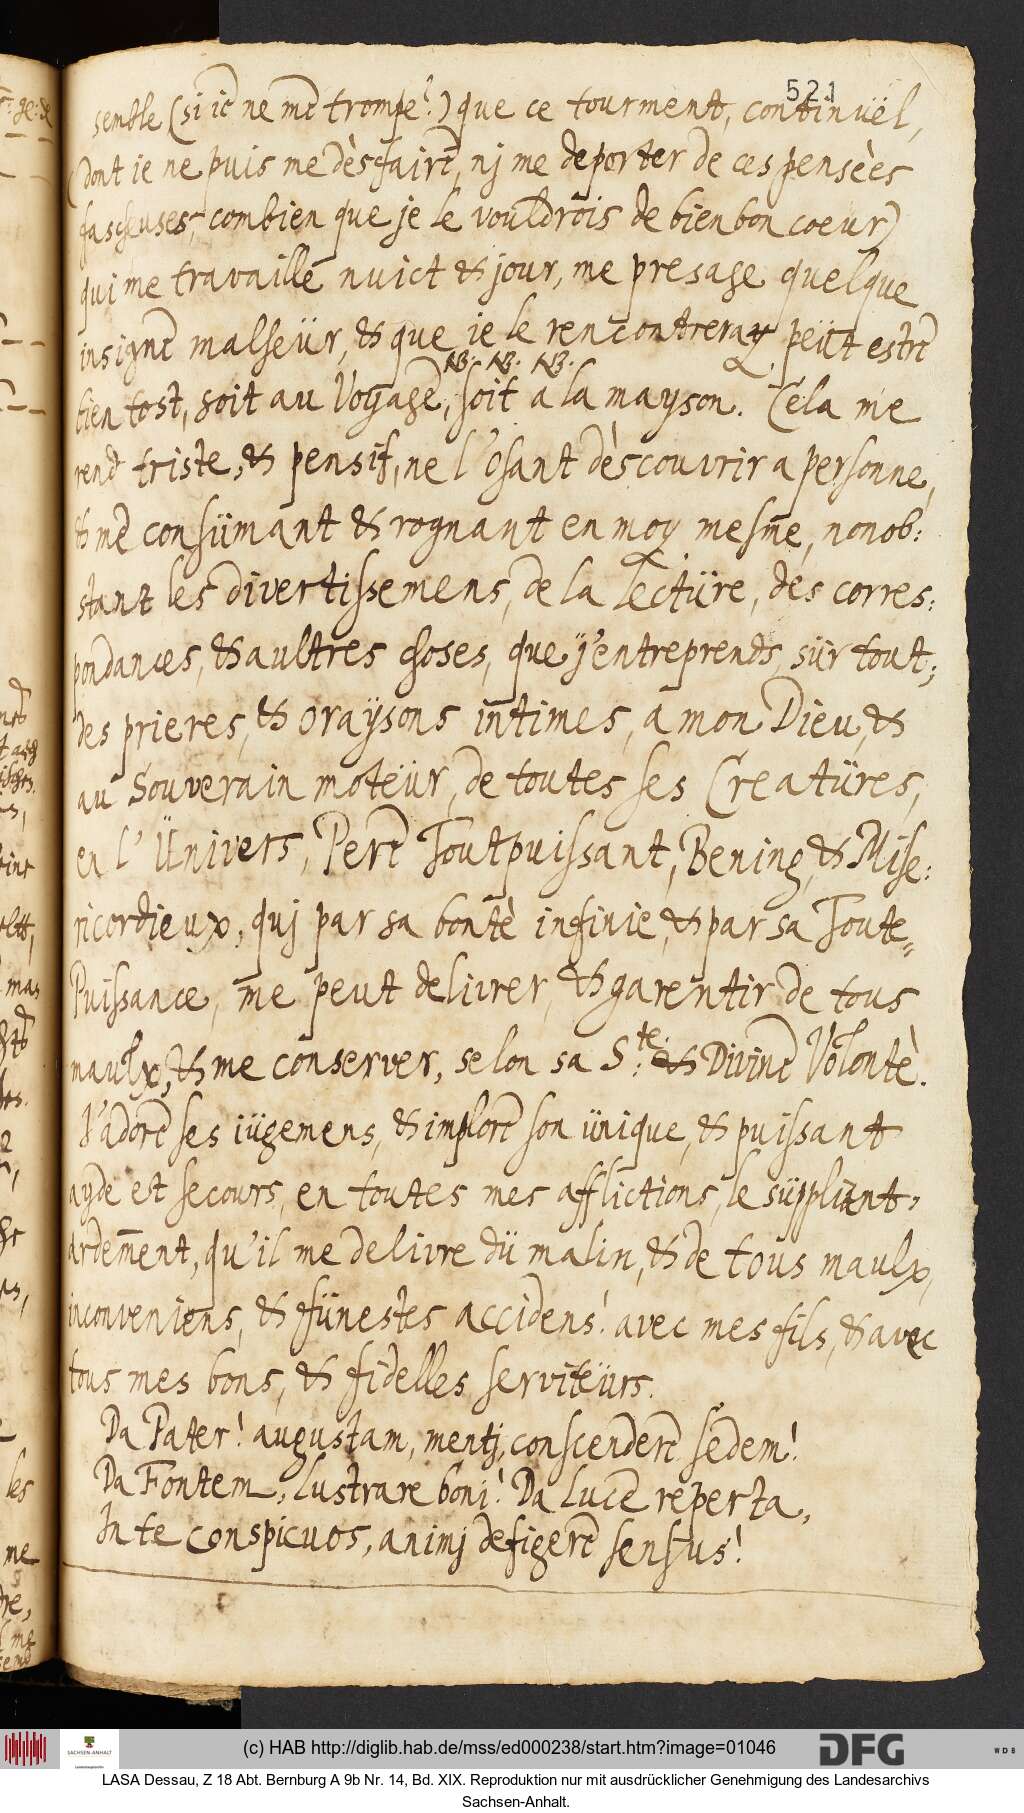 521
semble (si ie ne me trompe?) que ce tourment, continuël,
(dont ie ne puis me dèsfaire, nj me deporter de ces pensèes
fascheuses, combien que je le vouldrois de bien bon coeur)
qui me travaille nuict & jour, me presage quelque
insigne malheür, & que ie le rencontreray, peüt estre
NB. NB. NB.
bien tost, soit au Voyage, soit a la mayson. Cela me
rend triste, & pensif, ne l'osant dèscouvrir a personne,
& me consümant & rognant en moy mesme, nonob:
stant les divertissemens, de la lectüre, des corres:
pondances, & aultres choses, que j'entreprends, sür tout;
des prieres, & oraysons intimes, a mon Dieu, &
au Souverain moteür, de toutes ses Creatüres,
en l'Ünivers, Pere Toutpuissant, Bening, & Mise:
ricordieux, quj par sa bontè infinie, & par sa Toute-
Puissance, me peut delivrer, & garentir de tous
maulx, & me conserver, selon sa S:te & Divine Volontè.
J'adore ses iügemens, & implore son ünique, & puissant
ayde et secours, en toutes mes afflictions, le süppliant,
ardemment, qu'il me delivre dü malin, & de tous maulx,
inconveniens, & fünestes accidens! avec mes fils, & avec
tous mes bons, & fidelles serviteürs.
Da Pater! augustam, mentj, conscendere sedem!
Da Fontem, lustrare boni! Da luce reperta,
In te conspicuos, animj defigere sensus!
(c) HAB http://diglib.hab.de/mss/ed000238/start.htm?image=01046
SACHSEN-ANHALT
DFG
WDB
LASA Dessau, Z 18 Abt. Bernburg A 9b Nr. 14, Bd. XIX. Reproduktion nur mit ausdrücklicher Genehmigung des Landesarchivs
Sachsen-Anhalt.